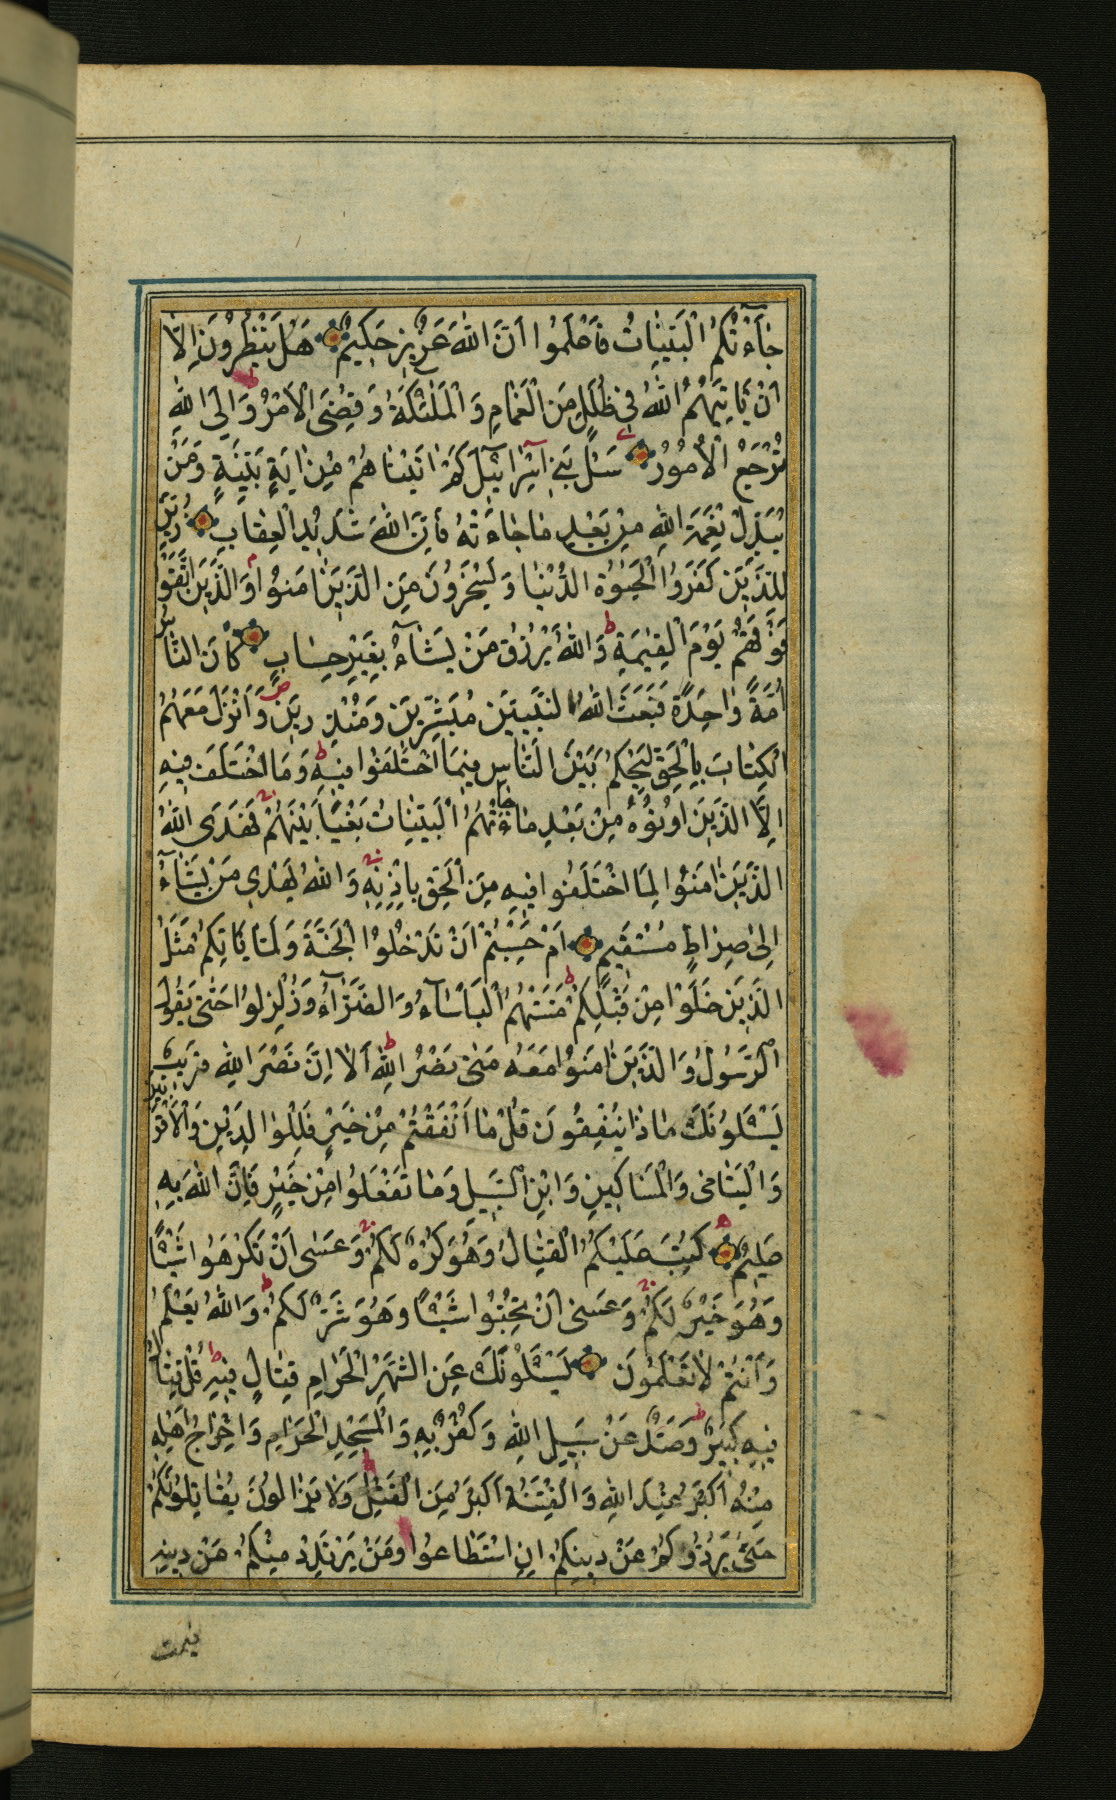 جَاءَتْكُمُ الْبَيِّنَاتُ فَاعْلَمُوا اَنَّ اللّٰهَ عَزِيزٌ حَكِيمٌ هَلْ يَنْظُرُونَ اِلَّا
اَنْ يَاْتِيَهُمُ اللّٰهُ فِي ظُلَلٍ مِنَ الْغَمَامِ وَالْمَلٰئِكَةُ وَقُضِيَ الْاَمْرُ ط وَاِلَى اللّٰهِ
تُرْجَعُ الْاُمُورُ سَلْ بَنِي اِسْرَائِيلَ كَمْ اٰتَيْنَاهُمْ مِنْ اٰيَةٍ بَيِّنَةٍ وَمَنْ
يُبَدِّلْ نِعْمَةَ اللّٰهِ مِنْ بَعْدِ مَا جَاءَتْهُ فَاِنَّ اللّٰهَ شَدِيدُ الْعِقَابِ زُيِّنَ
لِلَّذِينَ كَفَرُوا الْحَيٰوةُ الدُّنْيَا وَيَسْخَرُونَ مِنَ الَّذِينَ اٰمَنُوا م وَالَّذِينَ اتَّقَوْا
فَوْقَهُمْ يَوْمَ الْقِيٰمَةِ ط وَاللّٰهُ يَرْزُقُ مَنْ يَشَاءُ بِغَيْرِ حِسَابٍ كَانَ النَّاسُ
اُمَّةً وَاحِدَةً فَبَعَثَ اللّٰهُ النَّبِيِّينَ مُبَشِّرِينَ وَمُنْذِرِينَ ص وَاَنْزَلَ مَعَهُمُ
الْكِتَابَ بِالْحَقِّ لِيَحْكُمَ بَيْنَ النَّاسِ فِيمَا اخْتَلَفُوا فِيهِ ط وَمَا اخْتَلَفَ فِيهِ
اِلَّا الَّذِينَ اُوتُوهُ مِنْ بَعْدِ مَا جَاءَتْهُمُ الْبَيِّنَاتُ بَغْيًا بَيْنَهُمْ ج فَهَدَى اللّٰهُ
الَّذِينَ اٰمَنُوا لِمَا اخْتَلَفُوا فِيهِ مِنَ الْحَقِّ بِاِذْنِهِ ج وَاللّٰهُ يَهْدِي مَنْ يَشَاءُ
اِلٰى صِرَاطٍ مُسْتَقِيمٍ اَمْ حَسِبْتُمْ اَنْ تَدْخُلُوا الْجَنَّةَ وَلَمَّا يَاْتِكُمْ مَثَلُ
الَّذِينَ خَلَوْا مِنْ قَبْلِكُمْ ط مَسَّتْهُمُ الْبَاْسَاءُ وَالضَّرَّاءُ وَزُلْزِلُوا حَتّٰى يَقُولَ
الرَّسُولُ وَالَّذِينَ اٰمَنُوا مَعَهُ مَتٰى نَصْرُ اللّٰهِ ط اَلَا اِنَّ نَصْرَ اللّٰهِ قَرِيبٌ
يَسْئَلُونَكَ مَاذَا يُنْفِقُونَ قُلْ مَا اَنْفَقْتُمْ مِنْ خَيْرٍ فَلِلْوَالِدَيْنِ وَالْاَقْرَبِينَ
وَالْيَتَامٰى وَالْمَسَاكِينِ وَابْنِ السَّبِيلِ وَمَا تَفْعَلُوا مِنْ خَيْرٍ فَاِنَّ اللّٰهَ بِهِ
عَلِيمٌ كُتِبَ عَلَيْكُمُ الْقِتَالُ وَهُوَ كُرْهٌ لَكُمْ ج وَعَسٰى اَنْ تَكْرَهُوا شَيْئًا
وَهُوَ خَيْرٌ لَكُمْ ج وَعَسٰى اَنْ تُحِبُّوا شَيْئًا وَهُوَ شَرٌّ لَكُمْ ط وَاللّٰهُ يَعْلَمُ
وَاَنْتُمْ لَا تَعْلَمُونَ يَسْئَلُونَكَ عَنِ الشَّهْرِ الْحَرَامِ قِتَالٍ فِيهِ ط قُلْ قِتَالٌ
فِيهِ كَبِيرٌ ط وَصَدٌّ عَنْ سَبِيلِ اللّٰهِ وَكُفْرٌ بِهِ وَالْمَسْجِدِ الْحَرَامِ وَاِخْرَاجُ اَهْلِهِ
مِنْهُ اَكْبَرُ عِنْدَ اللّٰهِ وَالْفِتْنَةُ اَكْبَرُ مِنَ الْقَتْلِ ط وَلَا يَزَالُونَ يُقَاتِلُونَكُمْ
حَتّٰى يَرُدُّوكُمْ عَنْ دِينِكُمْ اِنِ اسْتَطَاعُوا وَمَنْ يَرْتَدِدْ مِنْكُمْ عَنْ دِينِهِ
فيمت